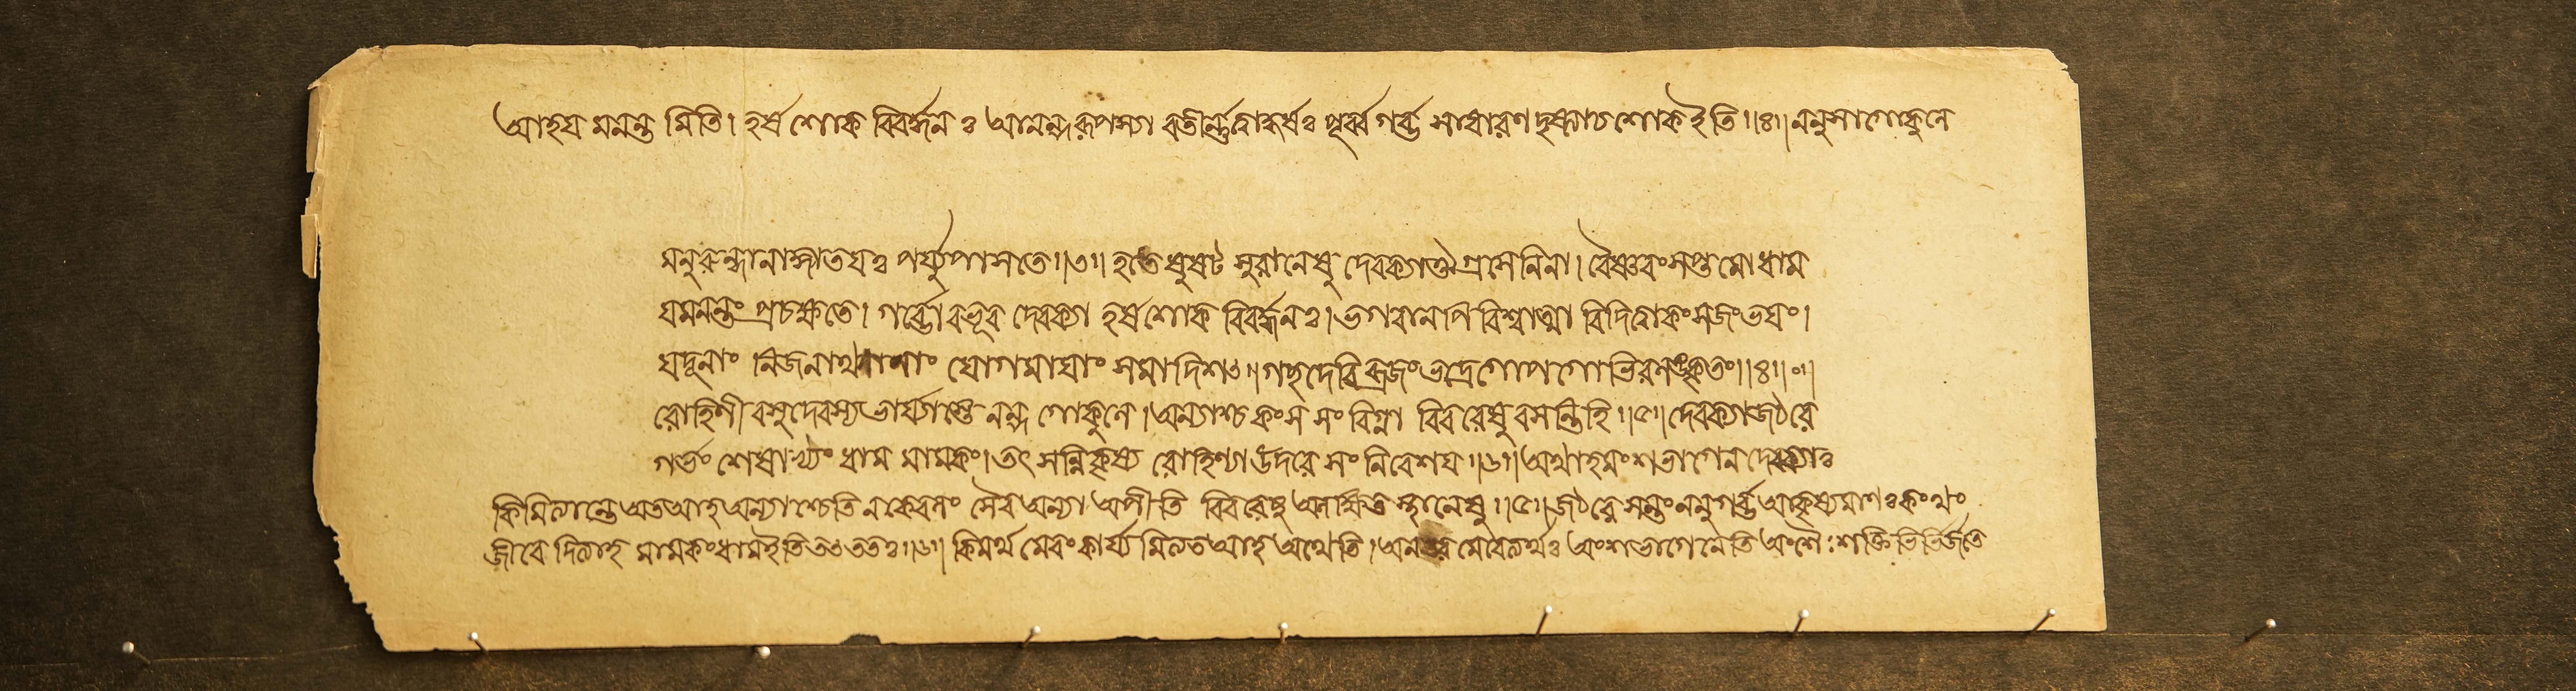 আহ যমনন্ত মিতি। হর্ষ শোক বিবর্দ্ধনঃ আনন্দরূপস্যা বতীর্ণত্বাদ্ধর্ষঃ পূর্ব্ব গর্ব্ভ সাধারণ দৃষ্ট্যাচ শোক ইতি॥৪॥ ননু সা গোকুলে
মনুরুন্ধানা জ্ঞাতয়ঃ পর্য্যুপাসতে॥৩॥ হতেষু ষট সু বালেষু দেবক্যা ঔগ্রসেনিনা। বৈষ্ণবং সপ্তমো ধাম
যমনন্তং প্রচক্ষতে। গর্ব্ভো বভূব দেবক্যা হর্ষ শোক বিবর্দ্ধনঃ। ভগবানপি বিশ্বাত্মা বিদিত্বা কংসজং ভয়ং।
যদূনাং নিজনাথানাং যোগমায়াং সমাদিশৎ॥ গচ্ছ দেবি ব্রজং ভদ্রে গোপ গোভিরলঙ্কৃতং॥৪॥০॥
রোহিণী বসুদেবস্য ভার্য্যাস্তে নন্দ গোকুলে। অন্যাশ্চ কংস সং বিগ্না বিবরেষু বসন্তিহি॥৫॥ দেবক্যা জঠরে
গর্ভং শেষাখ্যং ধাম মামকং। তৎ সন্নিকৃষ্য রোহিণ্যা উদরে সং নিবেশয়॥৬॥ অথাহমংশভাগেন দেবক্যাঃ
কিমিত্যাস্তে অত আহ অন্যাশ্চেতি ন কেবলং সৈব অন্যা অপীতি বিবরেষু অলক্ষিত স্থানেষু॥৫॥ জঠরে সন্তং ননু গর্ব্ভ আকৃষ্যমাণঃ কং থং
জীবে দিত্যাহ মামকং ধাম ইতি তৎ ততঃ॥৬॥ কিমর্থ মেবং কার্য্য মিত্যত আহ অথেতি। অনন্তর মেবেত্যর্থঃ অংশভাগেনেতি অংশৈঃ শক্তিভির্ভজতে